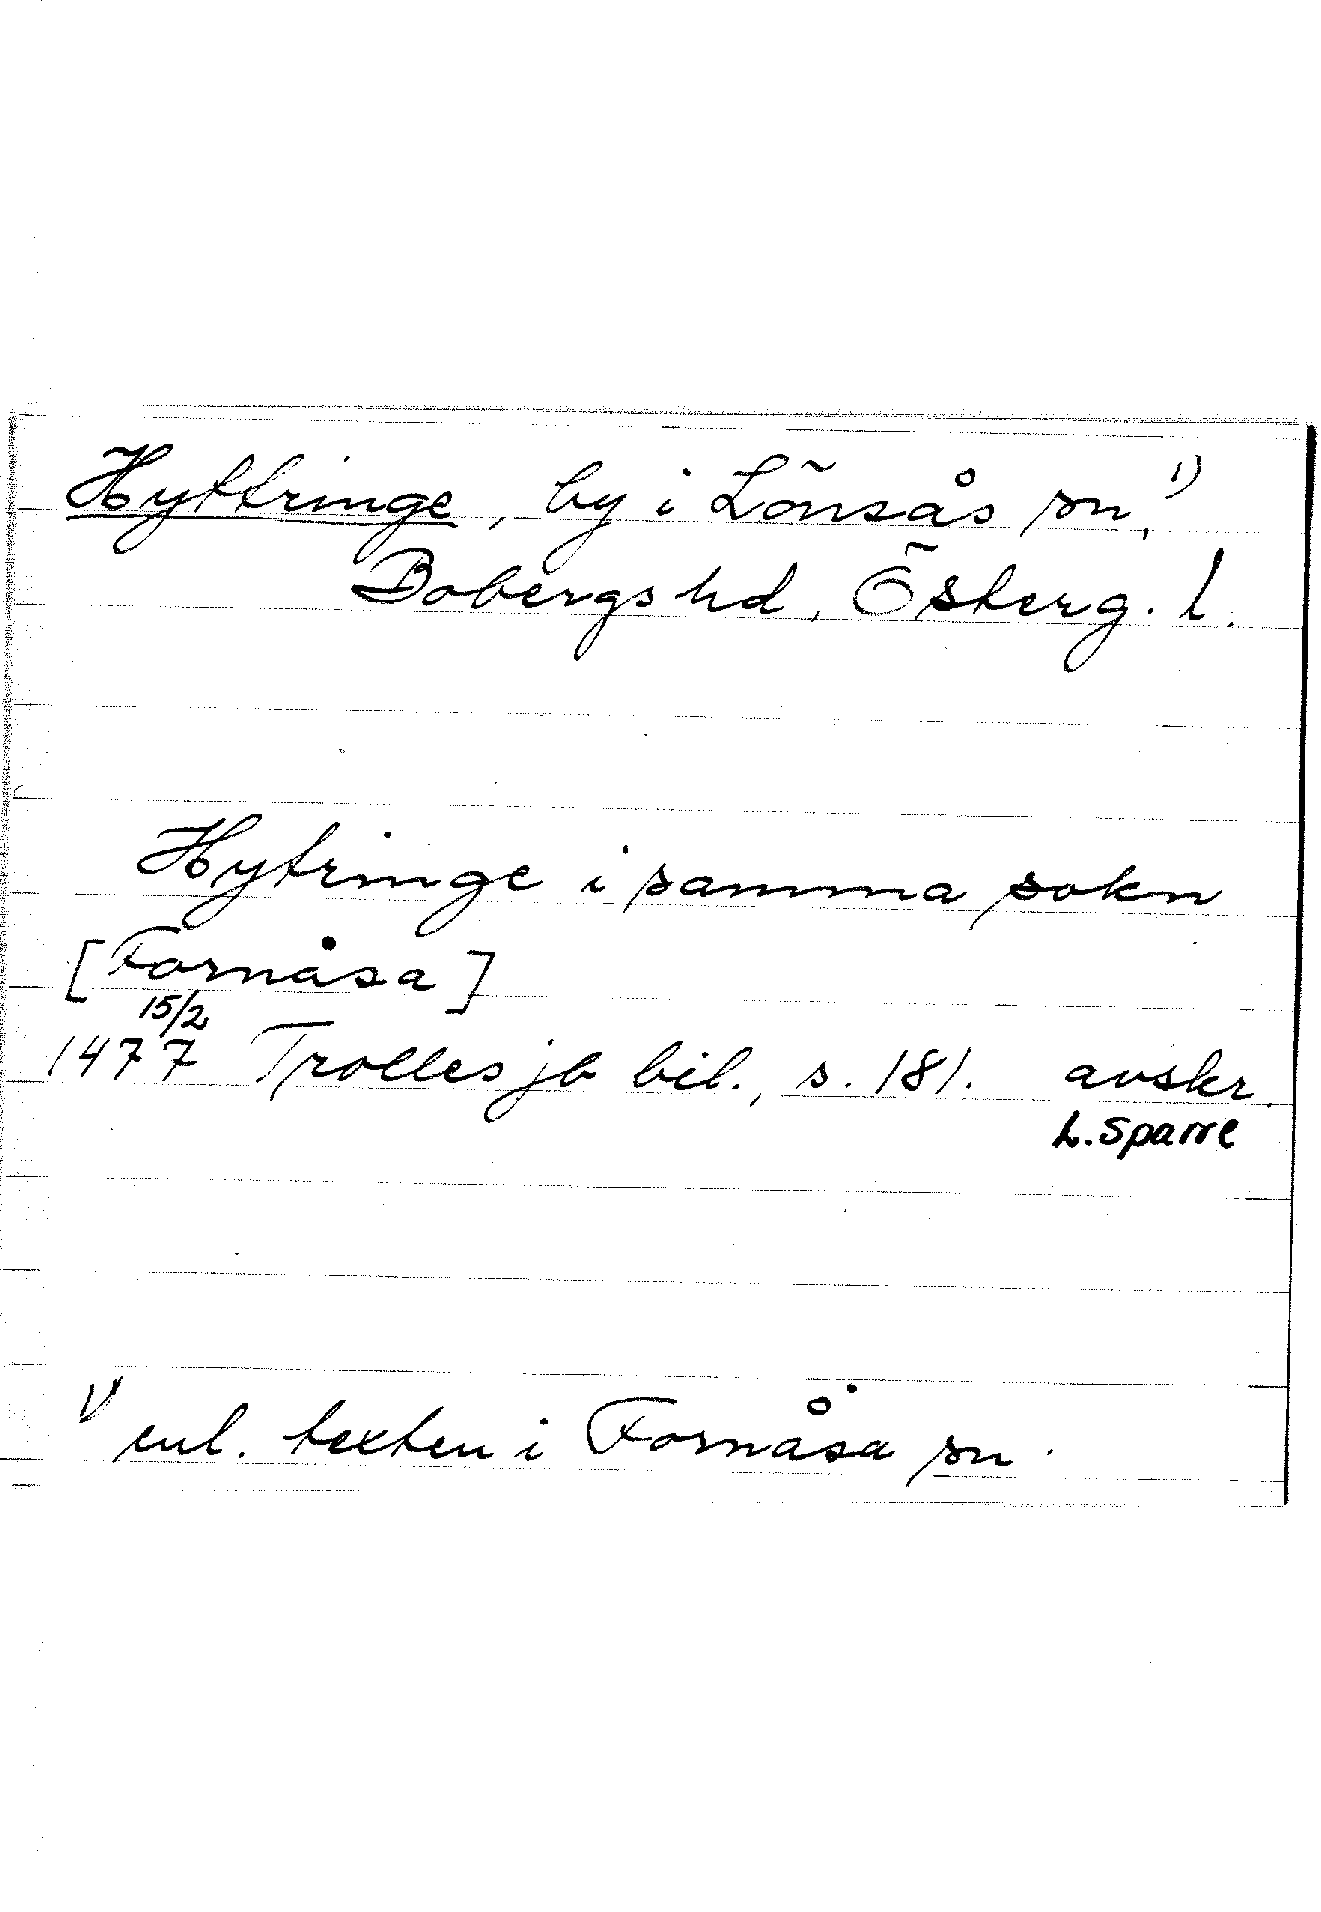 Hyttringe, by i Lönsås sn, 1)
Bobergs hd, Österg. l.
Hytringe i samma sokn
[Fornåsa]
15/2
1477 Trolles jb bil., s. 181. avskr.
L. Sparre
1) enl. texten i Fornåsa sn.